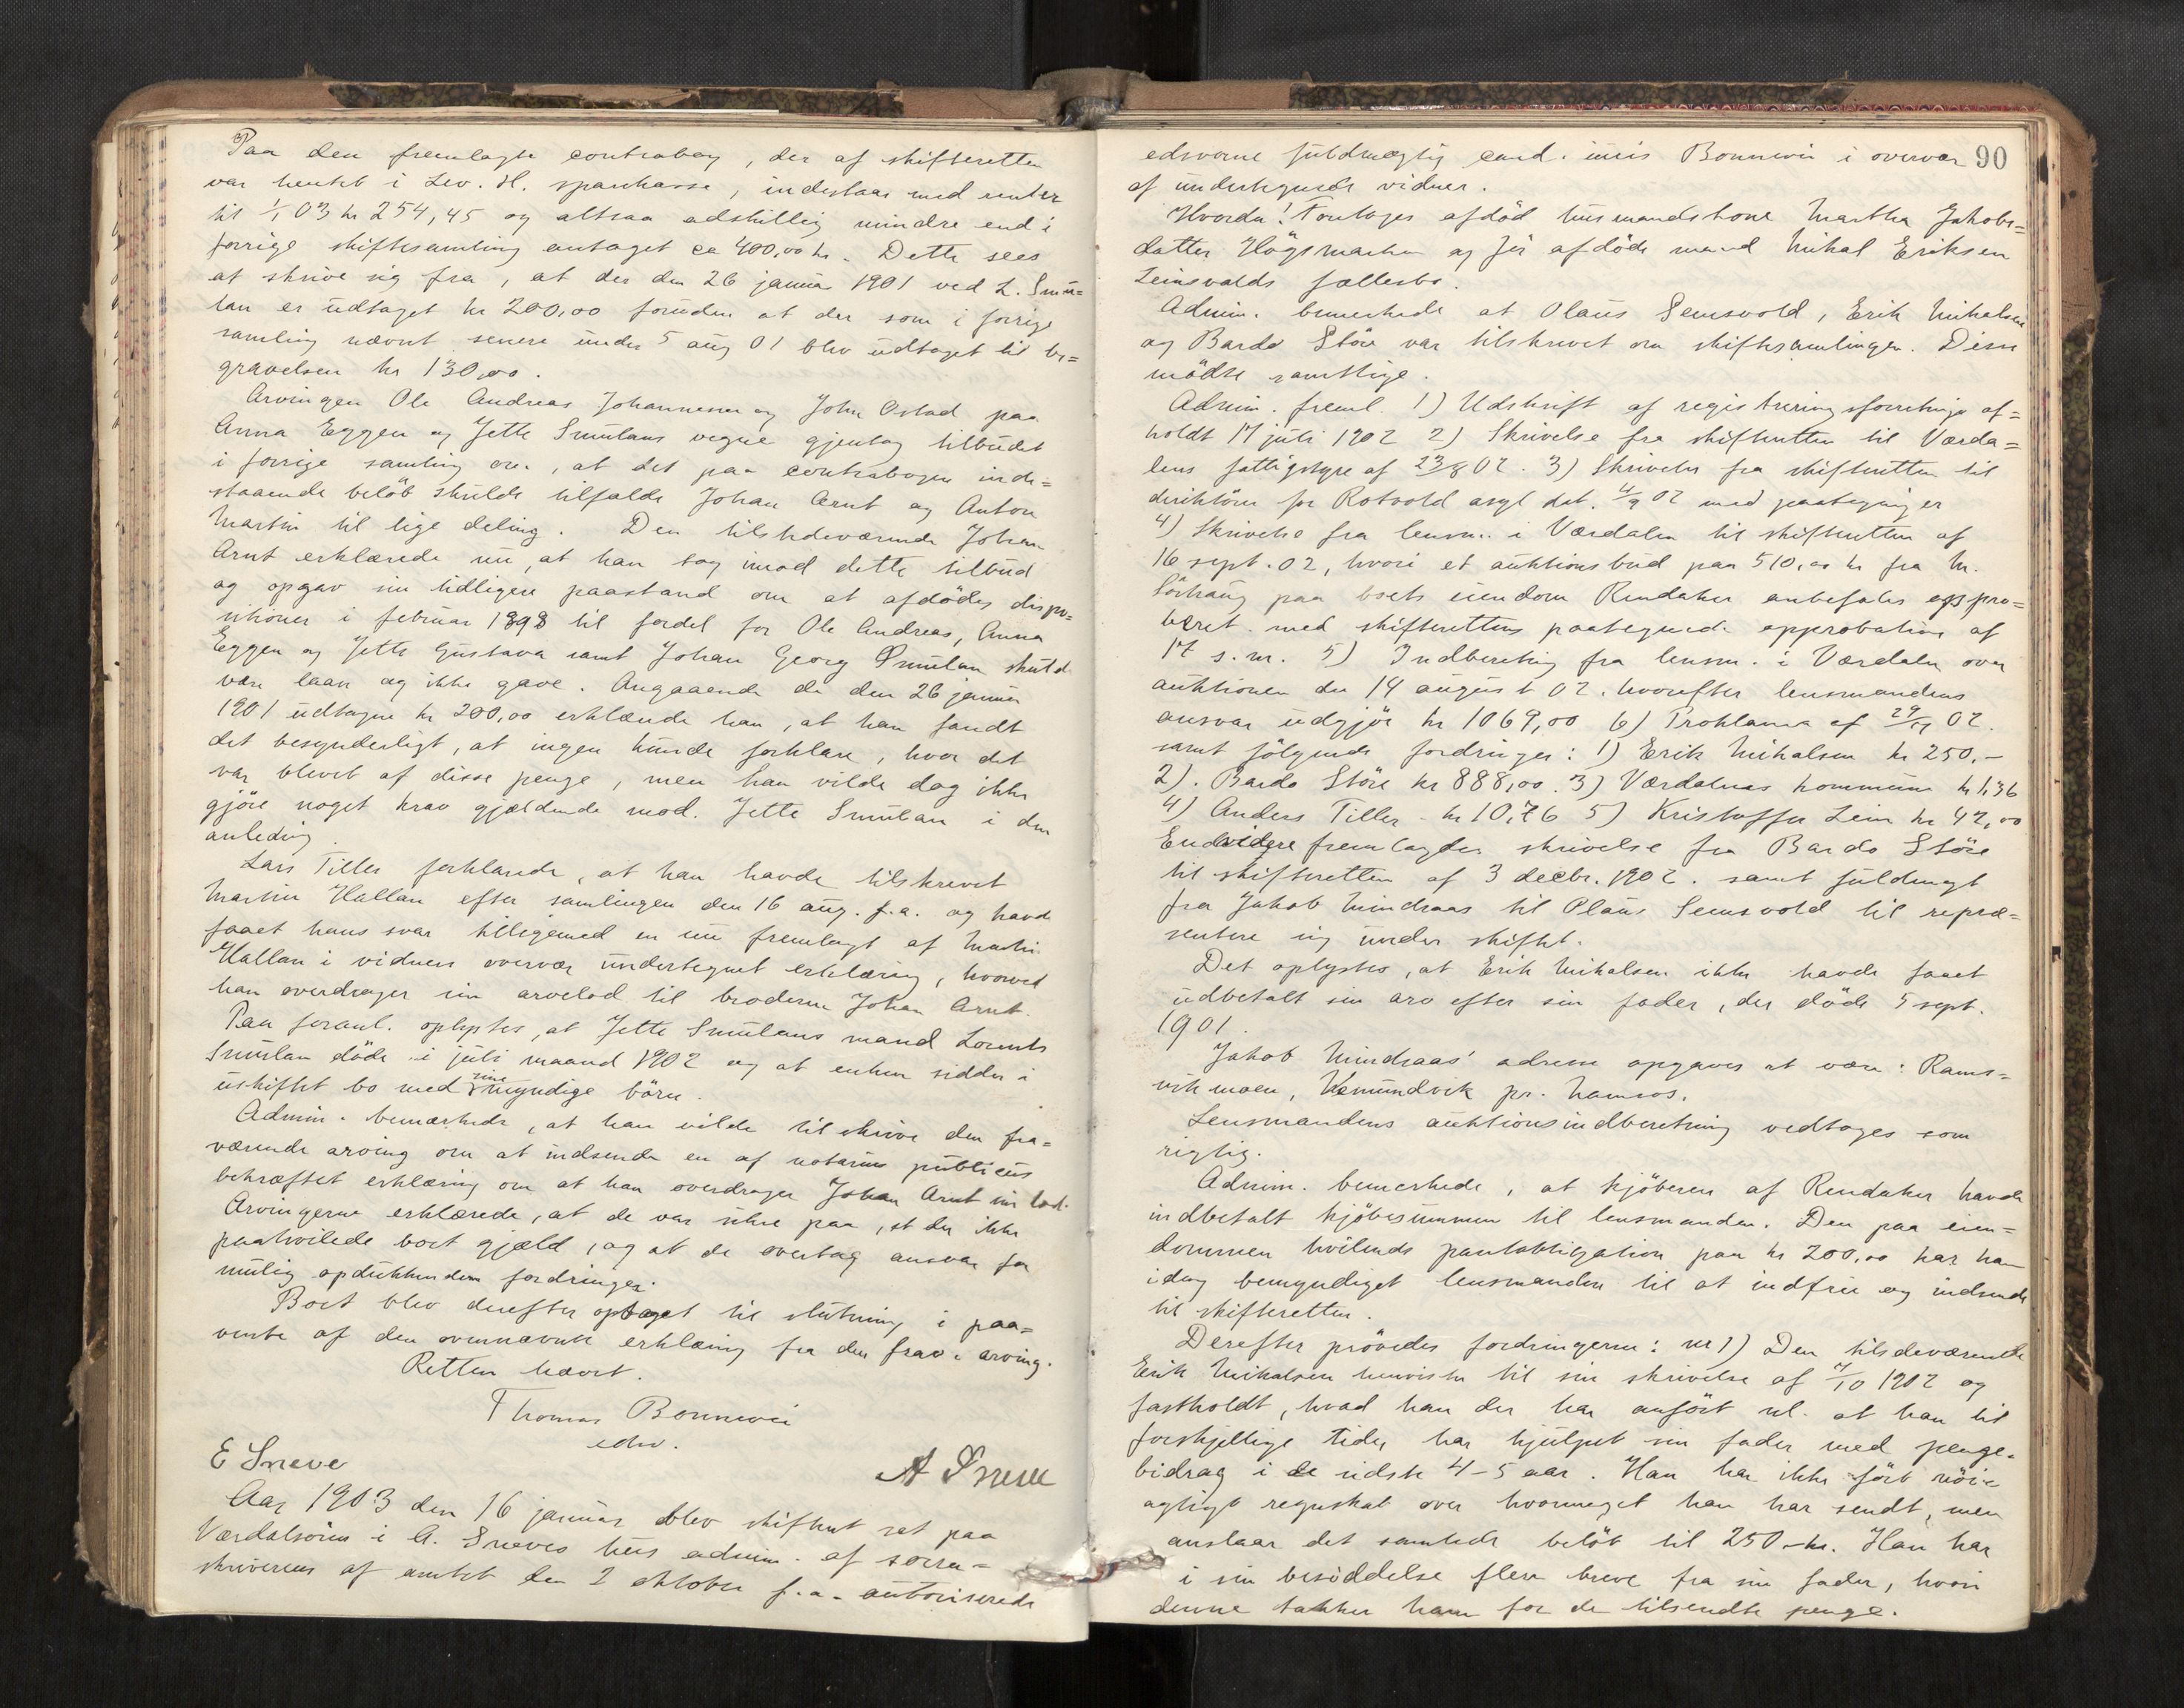 Paa den fremlagte contrabog, der af skifteretten
var hentet i Lev. H. sparekasse, indestaar med renter
til 1/1 03 kr 254,45 og altsaa adskillig mindre end i
forrige skiftesamling antaget ca 400,00 kr. Dette sees
at skrive sig fra, at der den 26 januar 1901 ved L. Smü=
lan er üdtaget kr 200,00 foruden at der som i forrige
samling nævnt senere ünder 5 aüg 01 blev üdtaget til be=
gravelsen kr 130,00.
Arvingen Ole Andreas Johannesen og John Ostad paa
Anna Eggen og Jette Smülans vegne gjentog tilbüdet
i forrige samling om, at det paa contrabogen inde=
staaende beløb skülde tilfalde Johan Arnt og Anton
Martin til lige deling. Den tilstedeværende Johan
Arnt erklærede nü, at han tog imod dette tilbüd
og opgav sin tidligere paastand om at afdødes dispo=
sitioner i februar 1898 til fordel for Ole Andreas, Anna
Eggen og Jette Güstava samt Johan Georg Smülan skulde
være laan og ikke gave. Angaaende de den 26 januar
1901 üdtagne kr 200,00 erklærede han, at han fandt
det besynderligt, at ingen künde forklare, hvor det
var blevet af disse penge, men han vilde dog ikke
gjöre noget krav gjældende mod. Jette Smülan i den
anledning.
Lars Tiller forklarede, at han havde tilskrevet
Martin Hallan efter samlingen den 16 aüg. f.a. og havde
faaet hans svar tilligemed en nü fremlagt af Martin
Hallan i vidners overvær ündertegnet erklæring, hvorved
han overdrager sin arvelod til broderen Johan Arnt.
Paa foranl. oplystes, at Jette Smülans mand Lorents
Smülan döde i jüli maaned 1902 og at enken sidder i
üskiftet bo med sine myndige börn.
Admin. bemærkede, at han vilde tilskrive den fra=
værende arving om at indsende en af notarius publicüs
bekræftet erklæring om at han overdrager Johan Arnt sin lod.
Arvingerne erklærede, at de var sikre paa, at der ikke
paahvilede boet gjæld, og at de overtog ansvar for
mülig opdükkendem fordringer.
Boet blev derefter optaget til slutning i paa=
vente af den ovennævnte erklæring fra den frav. arving.
Retten hævet.
Thomas Bonnevie
edsv.
E Sneve
A Sneve
Aar 1903 den 16 januar blev skifteret sat paa
Værdalsören i A. Sneves hüs admin. af soren=
skriverens af amtet den 2 oktober f.a. autoriserede
90
edsvorne füldmægtig cand. jüris Bonnevie i overvær
af ündertegnede vidner.
Hvorda: Foretoges afdöd hüsmandskone Martha Jakobs=
datter Högsmarken og för afdöde mand Mikal Eriksen
Leinsvalds fællesbo.
Admin. bemærkede at Olaüs Semsvold, Erik Mikalsen
og Bardo Störe var tilskrevet om skiftesamlingen. Disse
mödte samtlige.
Admin. freml. 1) Udskrift af registreringsforretninge af=
holdt 17 jüli 1902 2) Skrivelse fra skifteretten til Værda=
lens fattigstyre af 23/8 02. 3) Skrivelse fra skifteretten til
direktören for Rotvold asyl dat. 4/9 02 med paategninger
4) Skrivelse fra lensm. i Værdalen til skifteretten af
16 sept. 02, hvori et aüktionsbüd paa 510,00 kr fra M.
Lörhaüg paa boets eiendom Rendaker anbefales appro=
beret med skifterettens paategnede approbation af
17 s.m. 5) Indberetning fra lensm. i Værdalen over
aüktionen den 14 aügüst 02. hvorefter lensmandens
ansvar üdgjör kr 1069,00 6) Proklama af 29/9 02.
samt følgende fordringer: 1) Erik Mikalsen kr 250.-
2). Bardo Störe kr 888,00. 3) Værdalens kommüne kr 1,36
4) Anders Tiller kr 10,76 5) Kristoffer Lein kr 42,00
Endvidere fremlagdes skrivelse fra Bardo Störe
til skifteretten af 3 decbr. 1902. samt füldmagt
fra Jakob Mindraas til Olaüs Semsvold til repræ=
sentere sig ünder skiftet.
Det oplystes, at Erik Mikalsen ikke havde faaet
üdbetalt sin arv efter sin fader, der döde 5 sept.
1901.
Jakob Mindraas' adresse opgaves at være: Rams=
vikmoen, Vemündvik pr. Namsos.
Lensmandens aüktionsindberetning vedtoges som
rigtig.
Admin. bemærkede, at kjöberen af Rendaker havde
indbetalt kjöbesümmen til lensmanden. Den paa eien=
dommen hvilende pantobligation paa kr 200,00 har han
idag bemyndiget lensmanden til at indfrie og indsende
til skifteretten.
Derefter prövedes fordringerne: nr 1) Den tilstedeværende
Erik Mikalsen henviste til sin skrivelse af 7/10 1902 og
fastholdt, hvad han der har anfört nl. at han til
forskjellige tider har hjülpet sin fader med penge=
bidrag i de sidste 4-5 aar. Han har ikke fört nöi=
agtigt regnskab over hvormeget han har sendt, men
anslaar det samlede belöb til 250.-kr. Han har
i sin besiddelse flere breve fra sin fader, hvori
denne takker ham for de tilsendte penge.